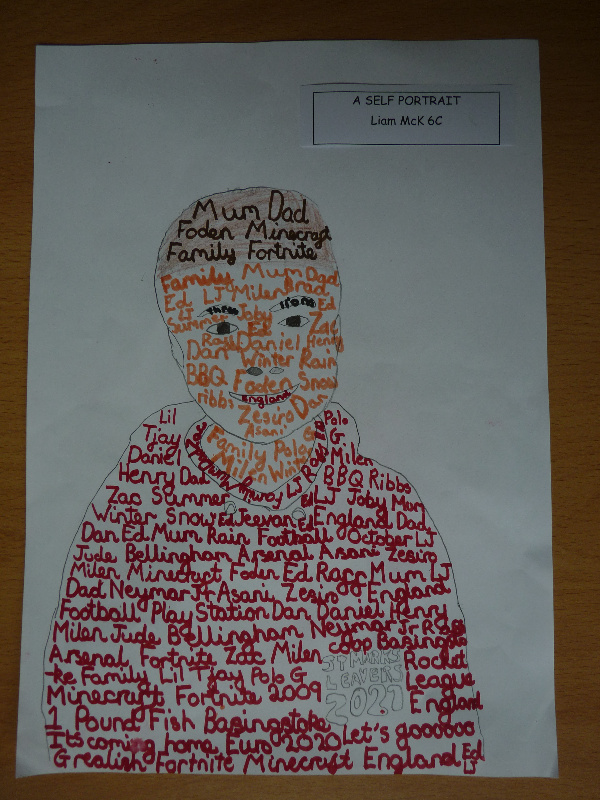 A SELF PORTRAIT
Liam McK 6C
Mum Dad
Foden Minecraft
Family Fortnite
Family Mum Dad
Ed LJ Milen Brad
three lions Ed
LJ Joby
Summer Ed Zac
Ray Daniel Henry
Dan Winter Rain
BBQ Foden Snow
England
ribbs Zesiro Dan
Asani
Family Polo G
Milen Winter
Lil Polo
Tjay G.
Daniel Milen
Henry Dad BBQ Ribbs
Zac Summer LJ Joby Mum
Winter Snow Ed Jeevan Ed England Dad
Dan Ed Mum Rain Football October LJ
Jude Bellingham Arsenal Asani Zesiro
Milen Minecraft Foden Ed Rapp Mum LJ
Dad Neymar Jr Asani Zesiro England
Football Play Station Dan Daniel Henry
Milen Jude Bellingham Neymar Jr
Arsenal Fortnite Zac Milen coop Basingsto
-ke Family Lil Tjay Polo G Rocket
Minecraft Fortnite 2009 League
England
ST MARKS
LEAVERS
2021
1 Pound Fish Basingstoke
Its coming home Euro 2020 Let's goooooo
Grealish Fortnite Minecraft England Ed
LJ